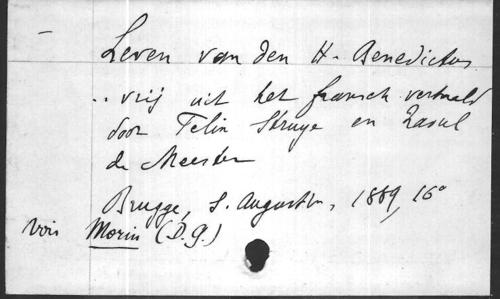 Leven van den H. Benedictus
.. vrij uit het fransch vertaald
door Felix Struye en Raoul
de Meester
Brugge, S. Augustin, 1889, 16°
Vois Morin (D. G.)